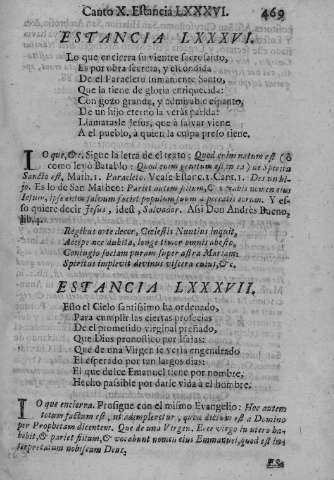 Canto X. Estancia LXXXVI. 469
ESTANCIA LXXXVI.
Lo que encierra su vientre sacrosanto,
Es por obra secreta, y escondida
De el Paracleto inmanente Santo,
Que la tiene de gloria enriquecida:
Con gozo grande, y admirable espanto,
De un hijo eterno la verás parida:
Llamarasle Jesus, que à salvar viene
A el pueblo, à quien la culpa preso tiene.
LO que, &c. Sigue la letra de el texto: Quod enim natum est (ò
como leyò Batablo: Quod enim genitum est in ea) de Spiritu
Sancto est, Math. 1. Paracleto. Vease Estanc. 1. Cant. 1. De un hi-
jo. Es lo de San Matheo: Pariet autem filium, & vocabis nomen eius
Iesum, ipse enim salvum faciet populum suum à peccatis eorum. Y es-
so quiere decir Jesus, idest, Salvador. Assi Don Andrès Bueno,
lib. 4.
Regibus orte decor, Cælestis Nuntius inquit,
Accipe nec dubita, longè timor omnis abesto,
Coniugio sociam puram super astra Mariam.
Spiritus implevit divinus viscera cuius, &c.
ESTANCIA LXXXVII.
Esto el Cielo santissimo ha ordenado,
Para cumplir las ciertas profecias
De el prometido virginal preñado,
Que Dios pronosticò por Isaìas:
Que de una Virgen se veria engendrado
El esperado por tan largos dias:
El que dulce Emanuel tiene por nombre,
Hecho passible por darle vida à el hombre.
LO que encierra. Prosigue con el mismo Evangelio: Hoc autem
totum factum est, ut adimpleretur, quod dictum est à Domino
per Prophetam dicentem. Que de una Virgen. Ecce virgo in utero ha-
bebit, & pariet filium, & vocabunt nomen eius Emmanuel, quod est in-
terpretatum nobiscum Deus.